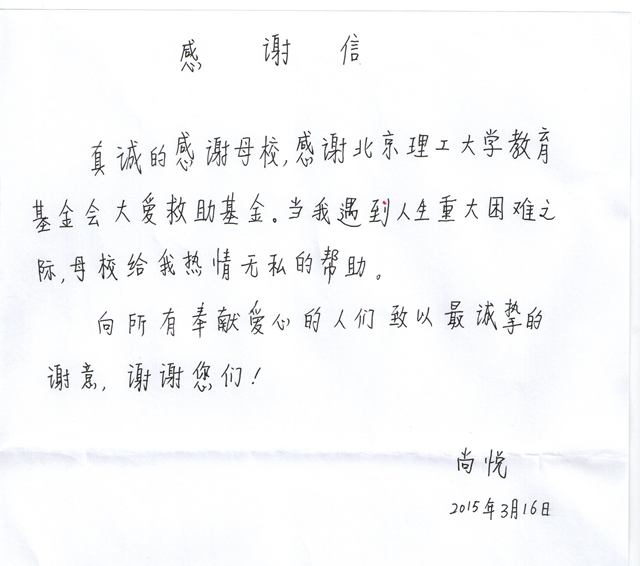 感谢信
真诚的感谢母校,感谢北京理工大学教育
基金会大爱救助基金。当我遇到人生重大困难之
际,母校给我热情无私的帮助。
向所有奉献爱心的人们致以最诚挚的
谢意,谢谢您们!
尚悦
2015年3月16日